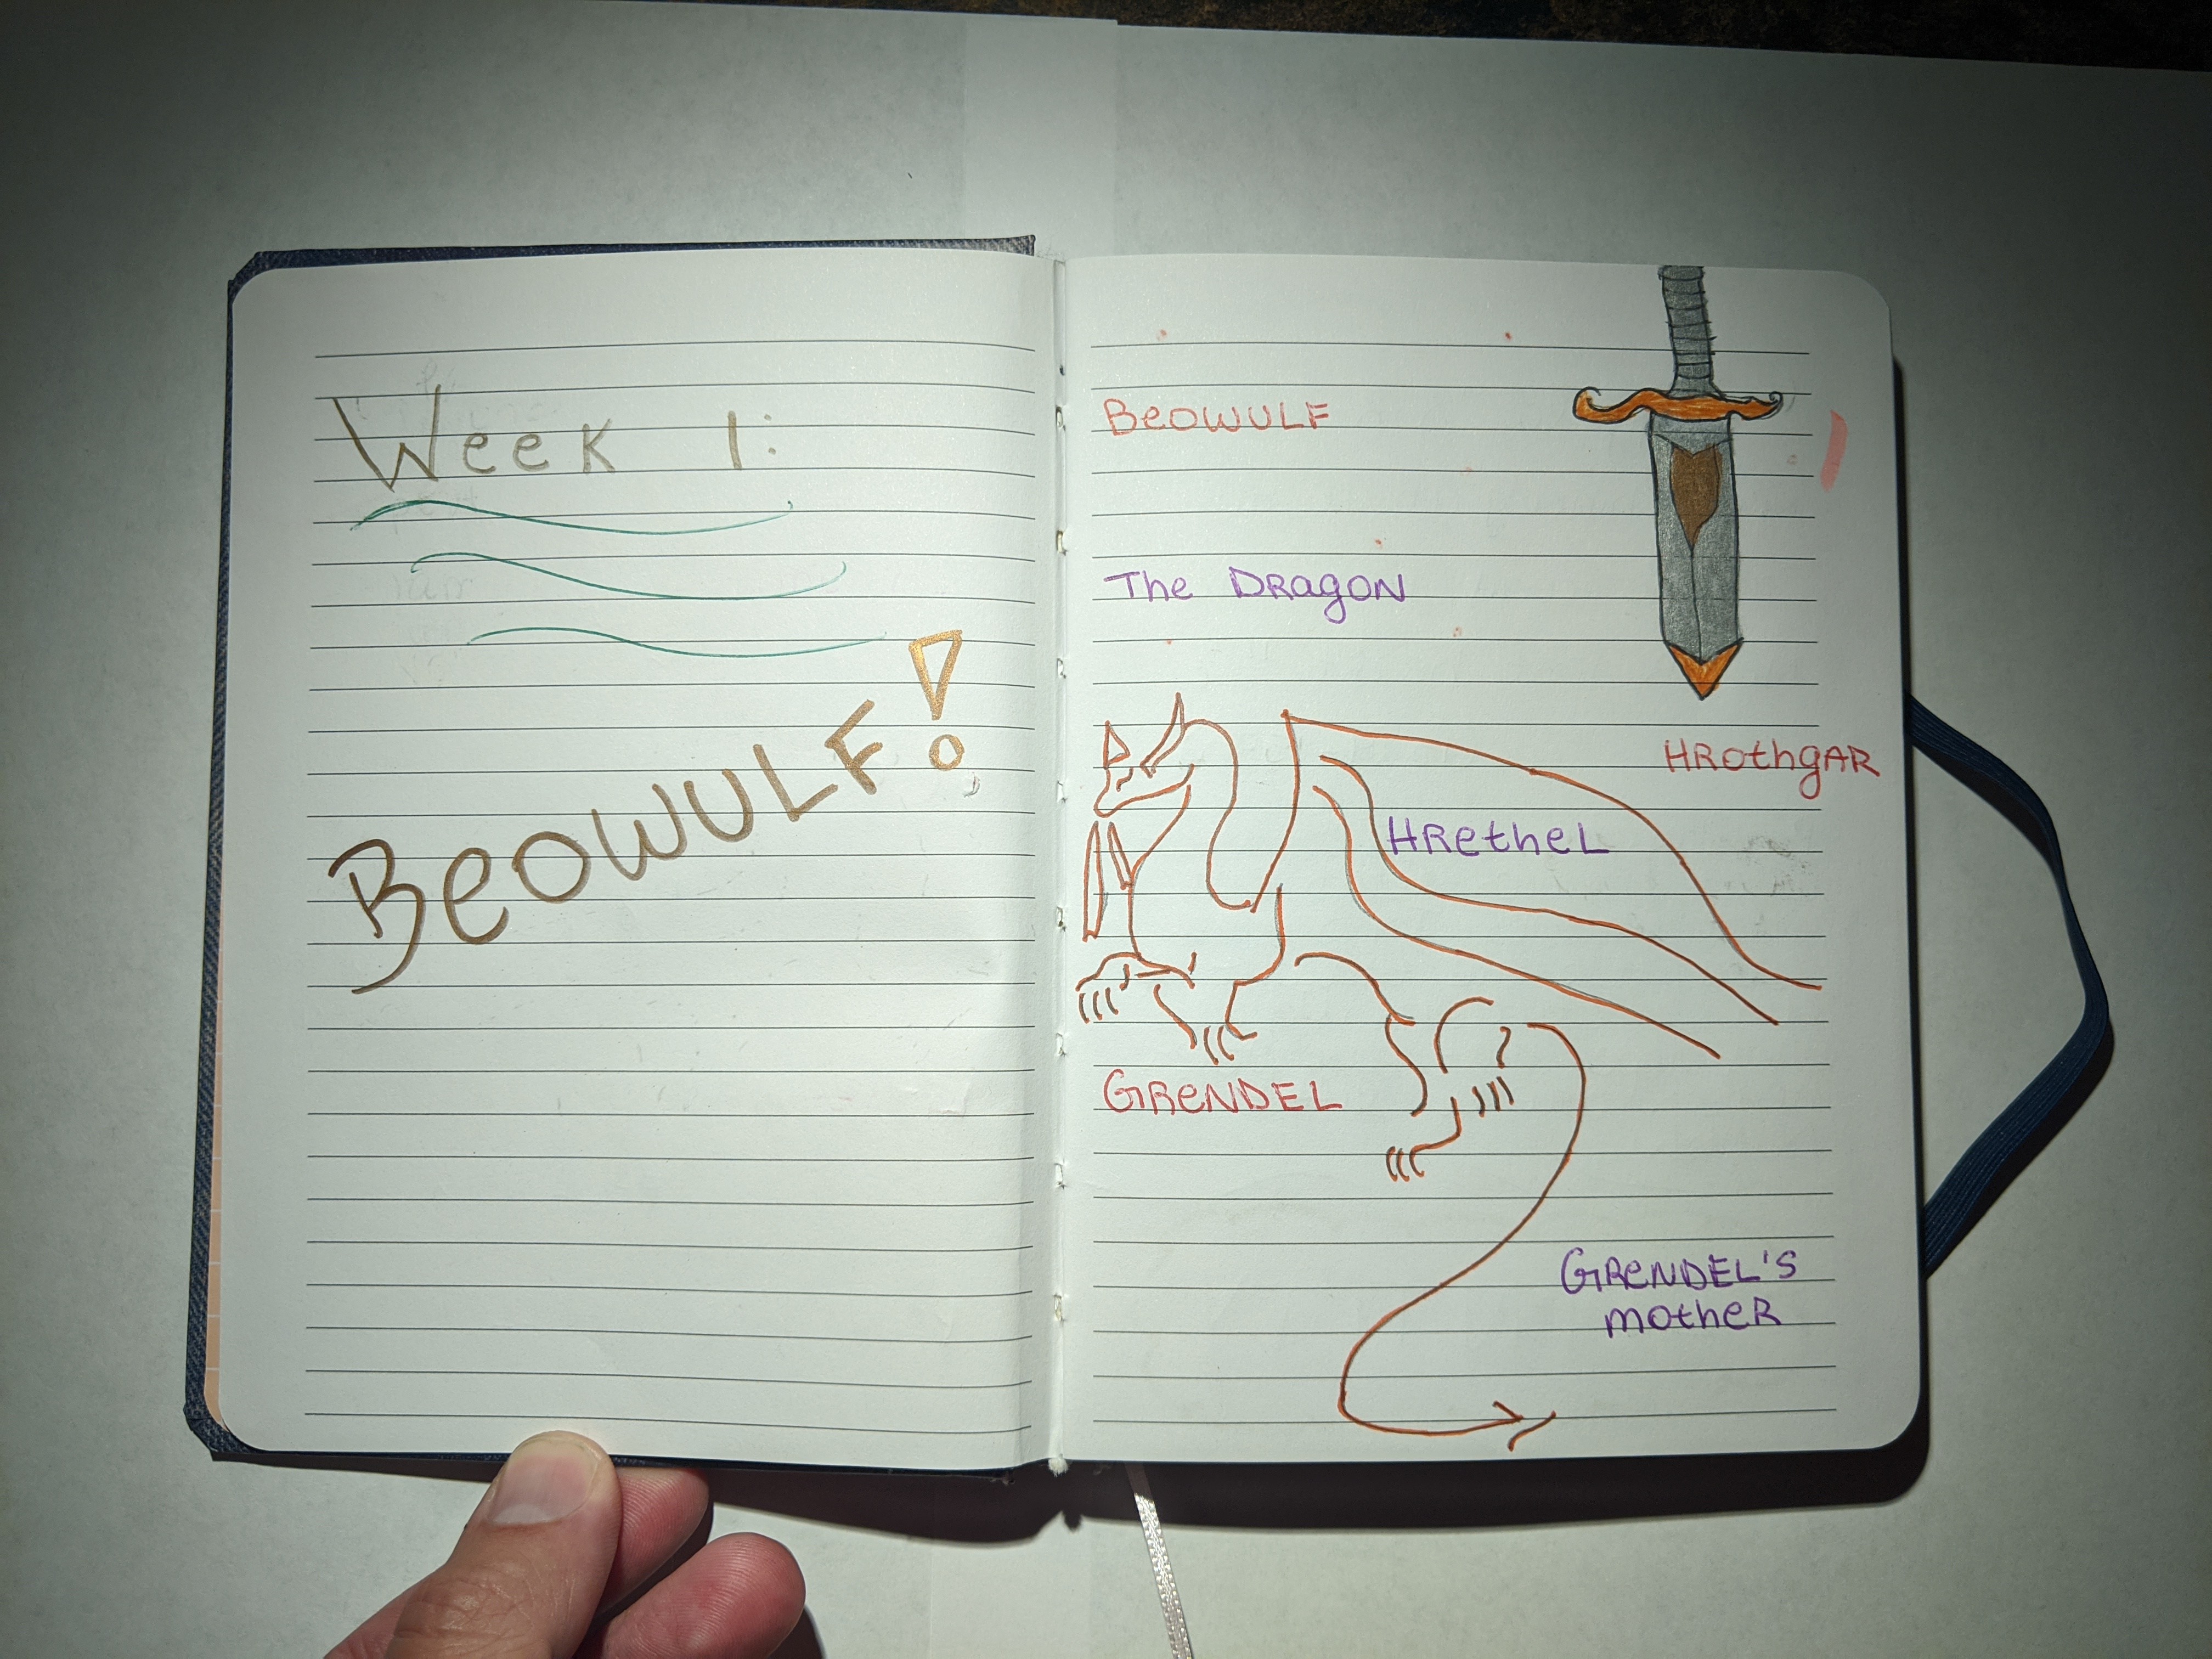 Week 1:
Beowulf!
Beowulf
The Dragon
Hrothgar
Hrethel
Grendel
Grendel's
mother